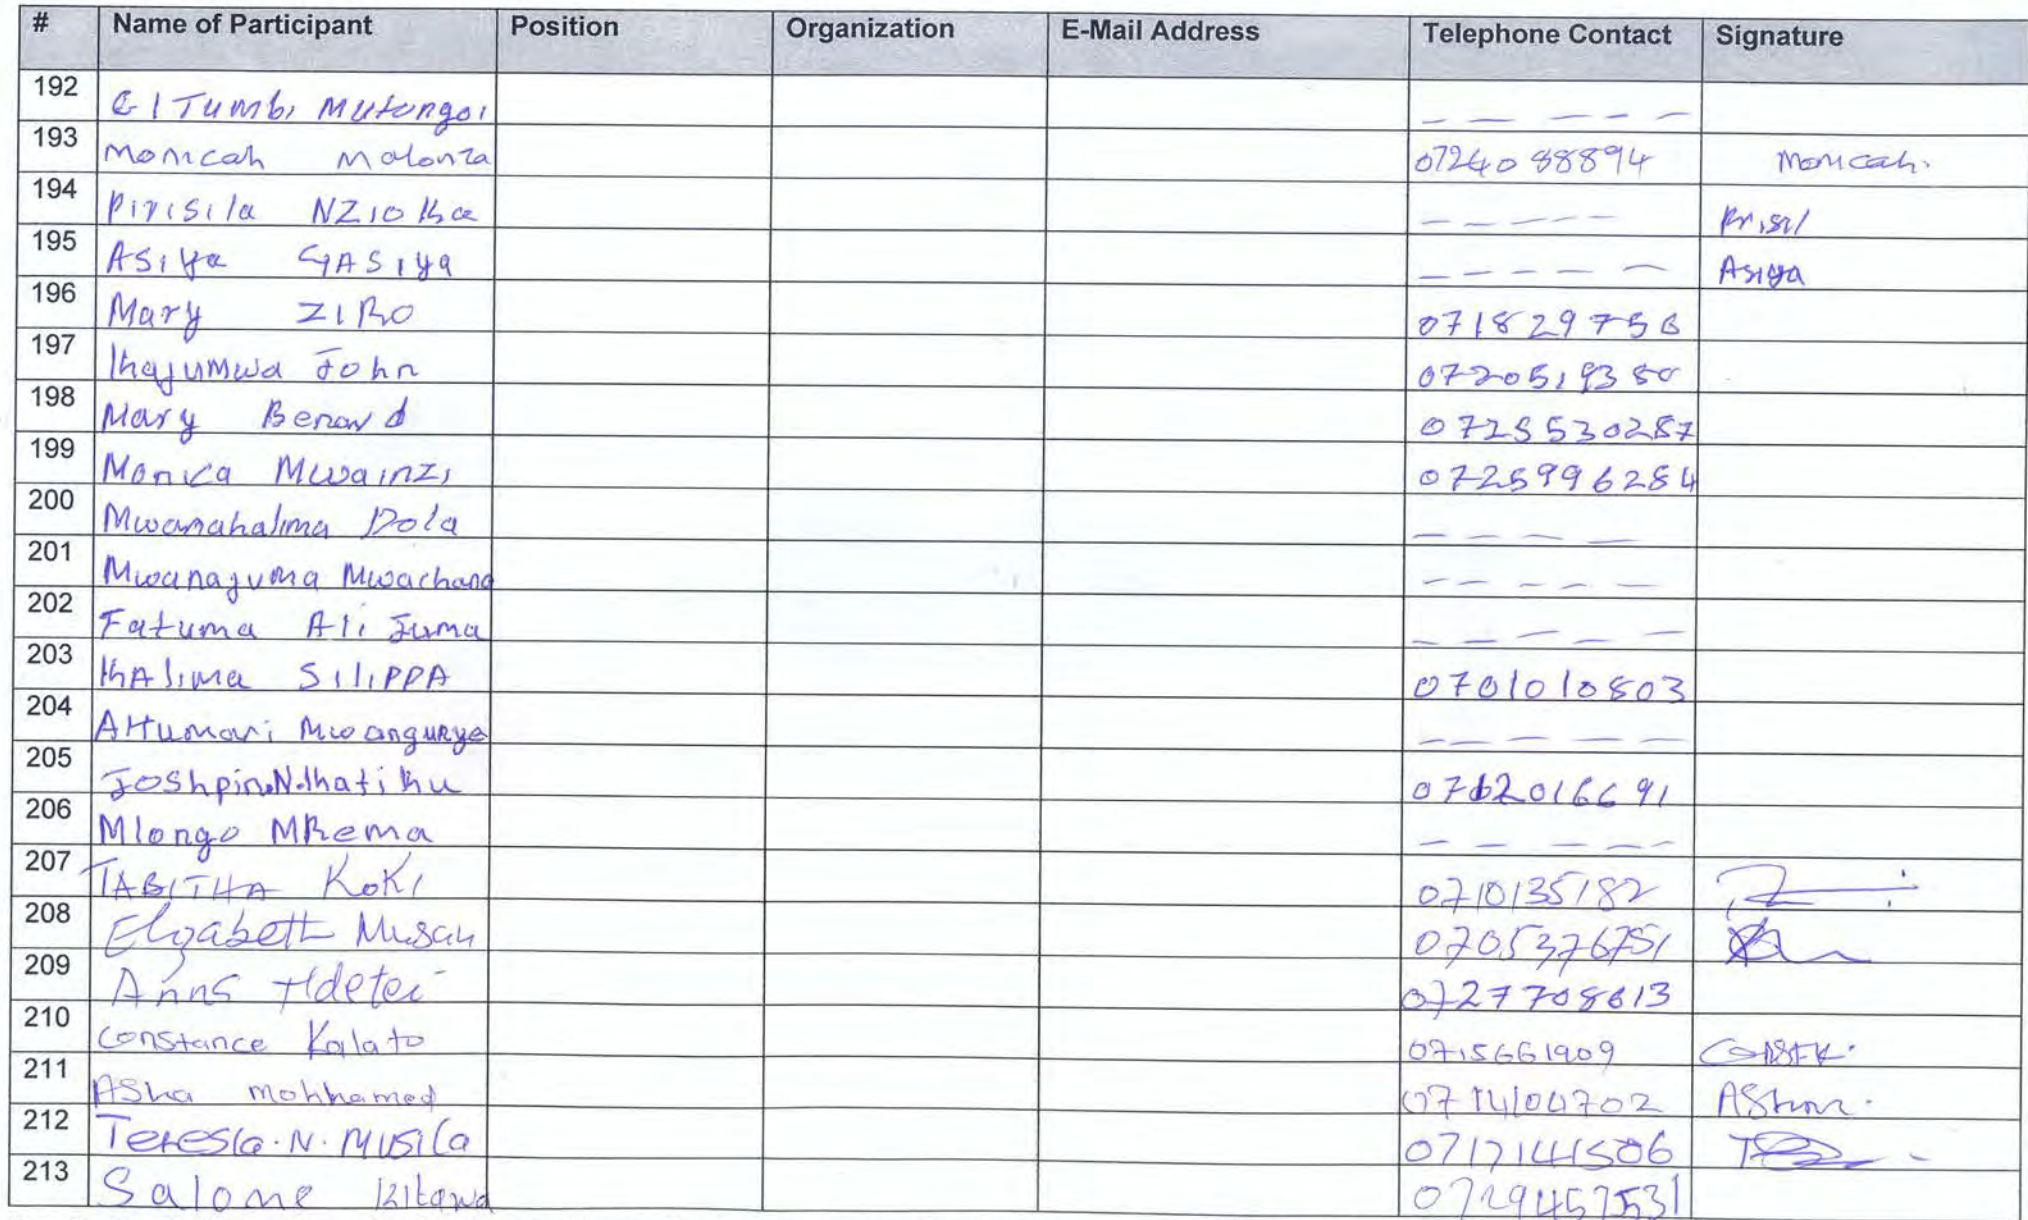 # Name of Participant Position Organization E-Mail Address Telephone Contact Signature
192 GITumbi Mutongoi — — — — —
193 Monicah Malonza 0724088894 Monicah.
194 Pirisila NZIOKa — — — — — Prisil
195 ASiya GASiya — — — — — Asiya
196 Mary ZIRO
197 KhajuMwa John
198 Mary Benard 0728530287
199 Monica Mwainzi 0725996284
200 Mwanahalima Dola — — — —
201 Mwanajuma Mwachand — — — — —
202 Fatuma Ali Juma — — — — —
203 SiliPPA 0701010803
204 AHumani Mwangunya — — — — —
205
206 Mlongo MRema — — — — —
207 TABITHA KoKi 0710135182
208 Elizabeth Musau 0705376751
209 0727708613
210 Constance Kalato 0715661909
211 ASha Mohhamed 0714104702
212 Teresia.N.MUSila 0717141506
213 Salome Kitawa 0729457531